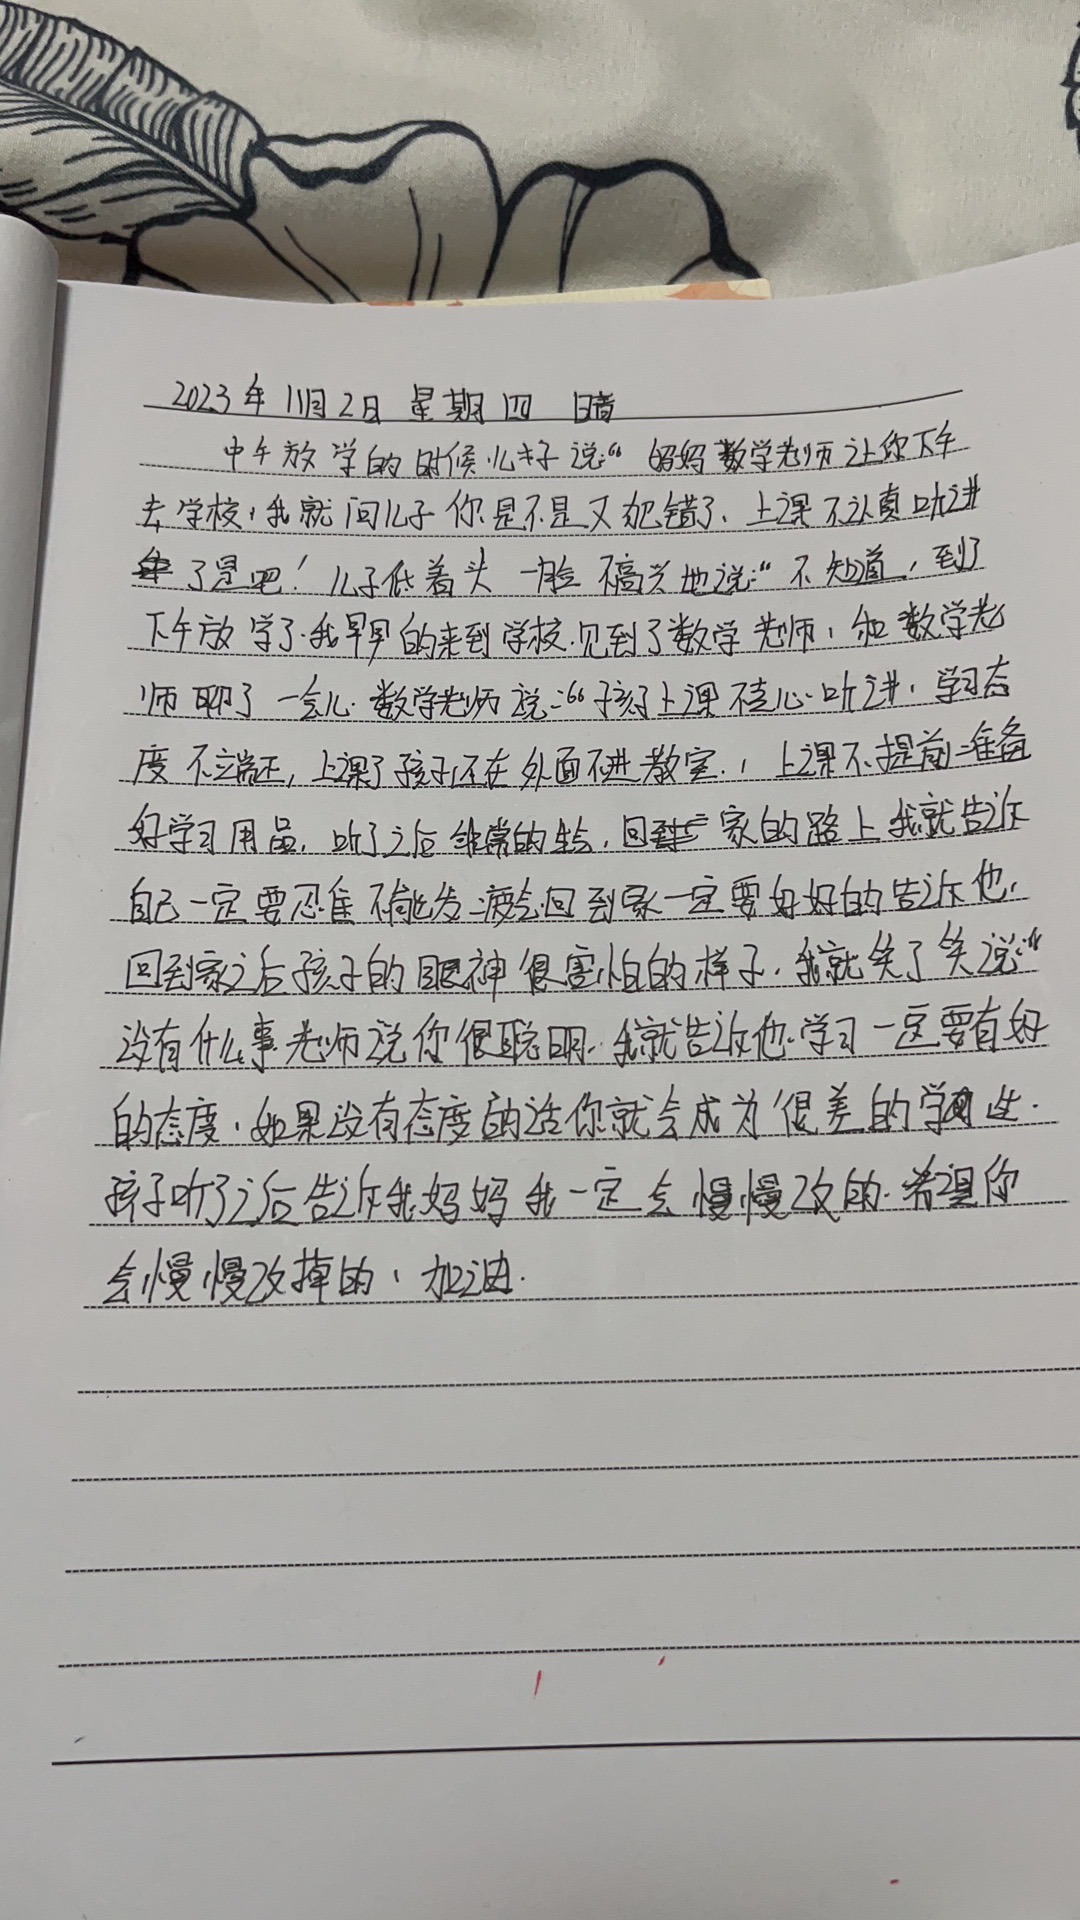 2023年11月2日 星期四 晴
中午放学的时候儿子说:“妈妈数学老师让你下午
去学校,我就问儿子你是不是又犯错了、上课不认真听讲
了是吧!儿子低着头 一脸不高兴地说:“不知道,到了
下午放学了.我早早的来到学校.见到了数学老师,和数学老
师聊了一会儿.数学老师说:“孩子上课不专心听讲,学习态
度不端正,上课了孩子还在外面不进教室.,上课不提前准备
好学习用品,听了之后非常的生气,回家的路上我就告诉
自己一定要忍住不能发脾气.回到家一定要好好的告诉他.
回到家之后孩子的眼神很害怕的样子,我就笑了笑说:“
没有什么事老师说你很聪明.我就告诉他.学习一定要有好
的态度,如果没有态度的话你就会成为很差的学生.
孩子听了之后告诉我妈妈我一定会慢慢改的.希望你
会慢慢改掉的,加油.